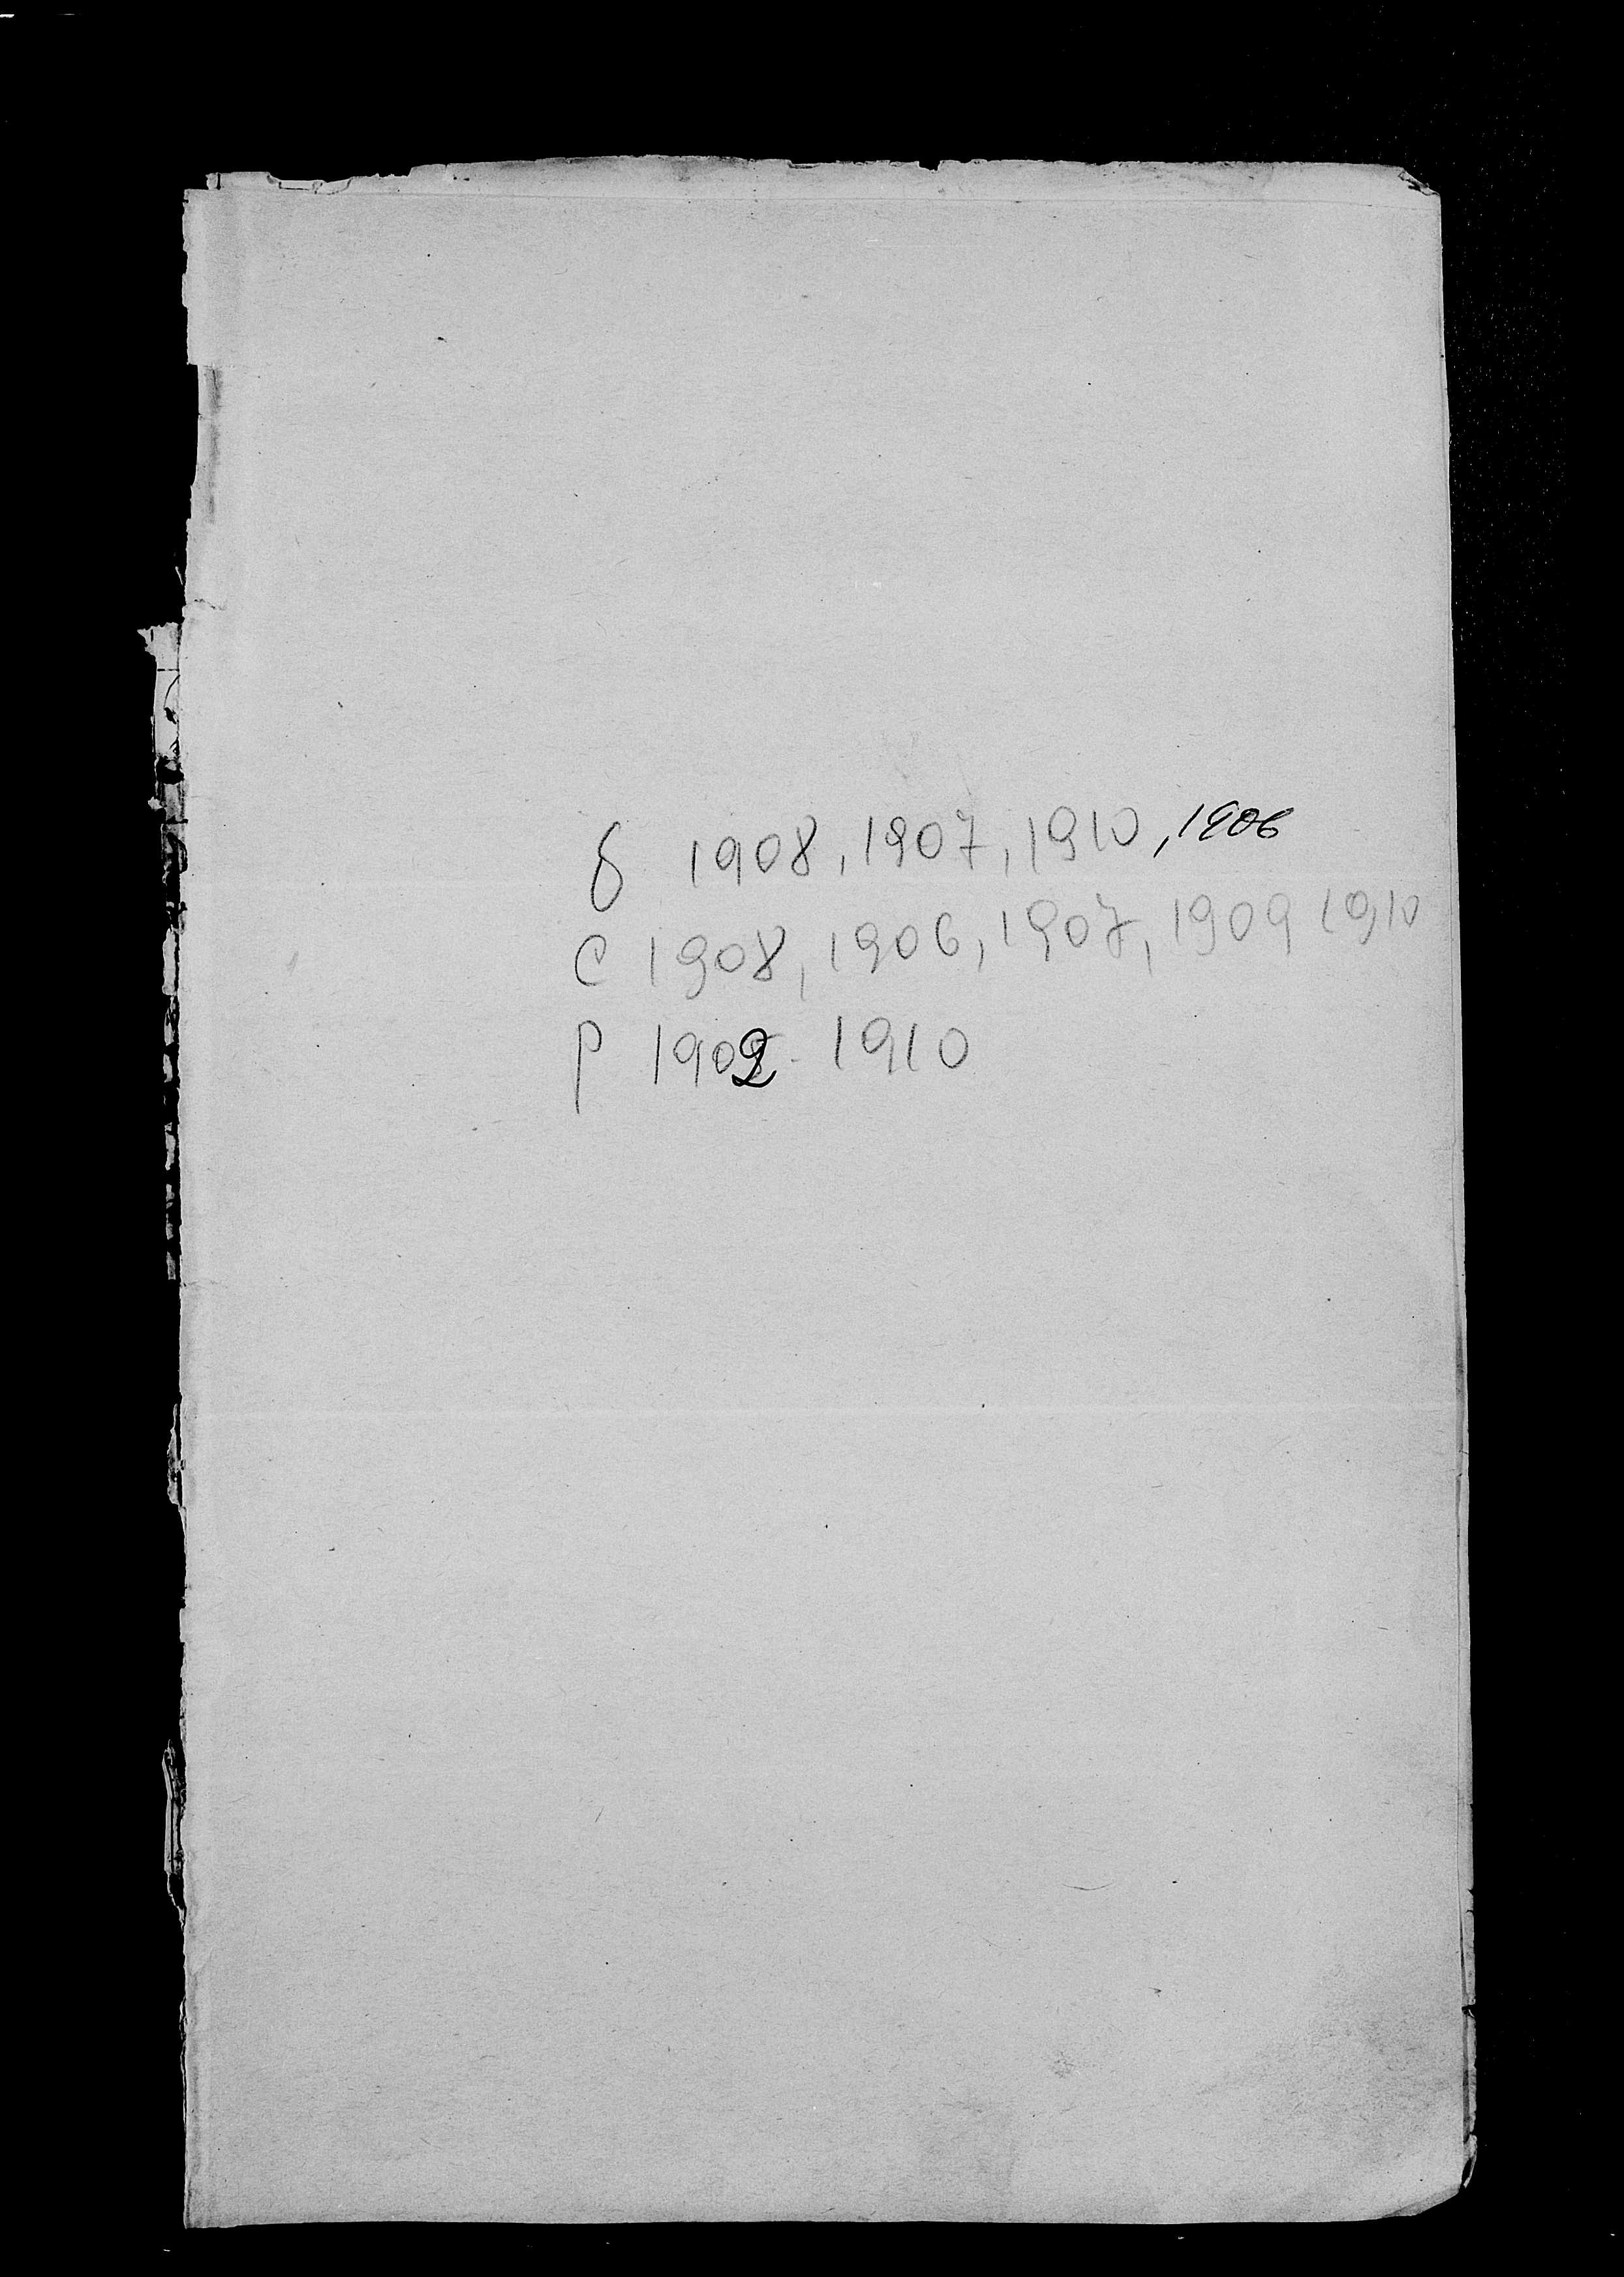 б 1908, 1907, 1910, 1906
с 1908, 1906, 1907, 1909 1910
р 1902 - 1910